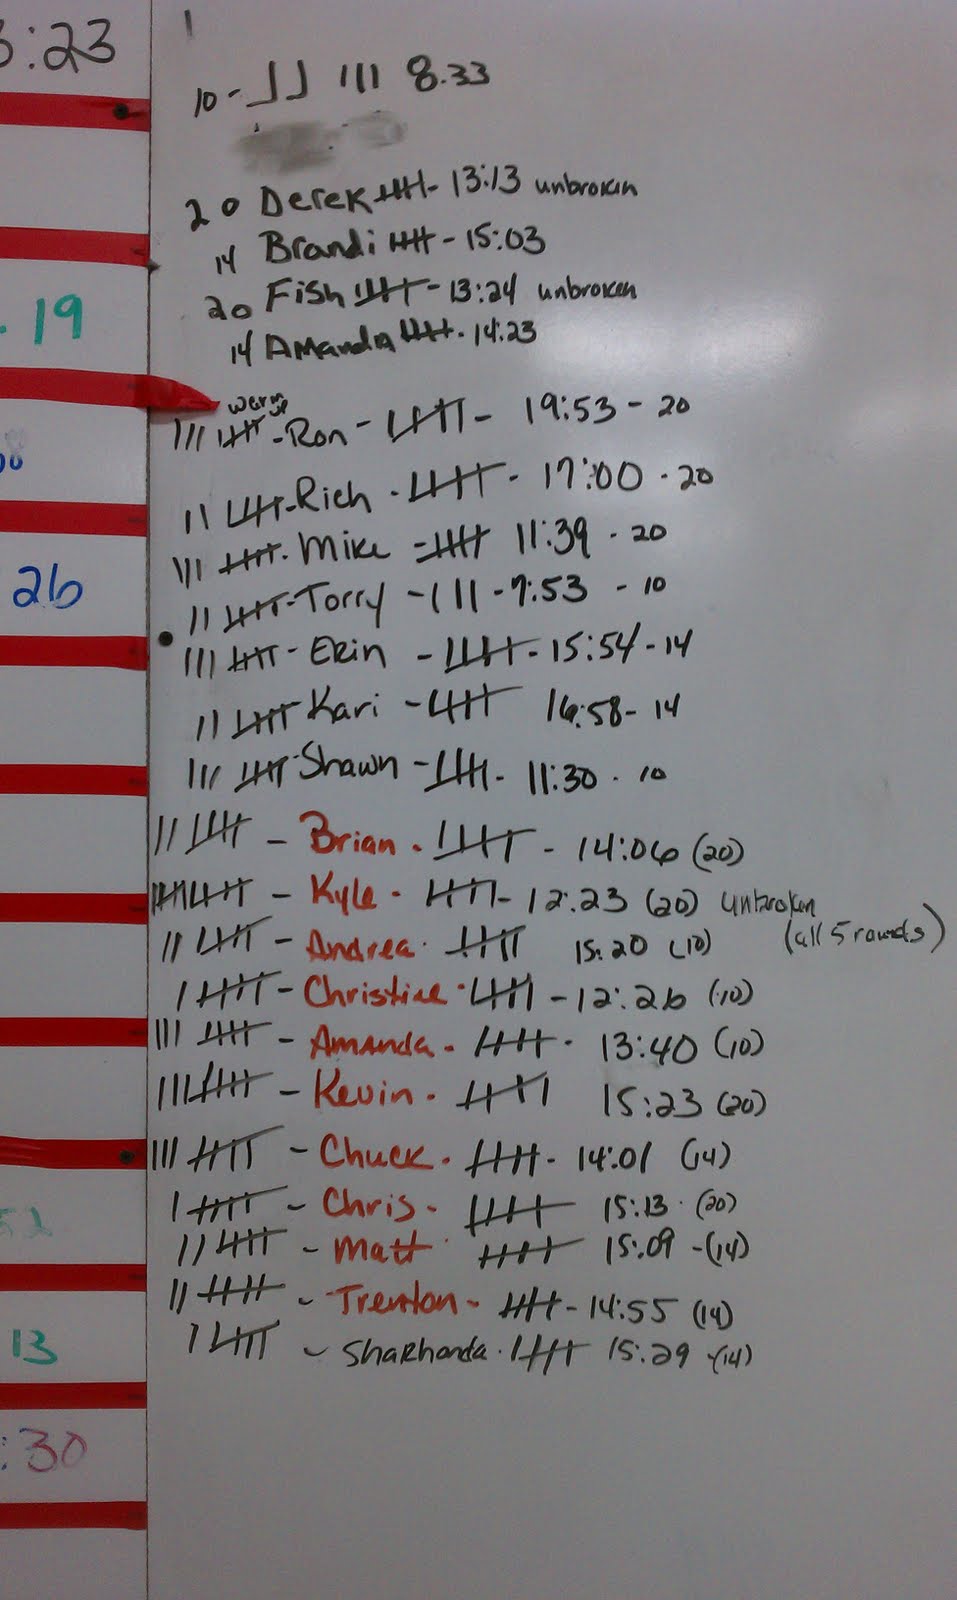 3:23
19
26
13
:30
10 - JJ III 8.33
20 Derek 卌 - 13:13 unbroken
14 Brandi 卌 - 15:03
20 Fish 卌 - 13:24 unbroken
14 Amanda 卌 - 14:23
warm up
III 卌 - Ron - 卌 - 19:53 - 20
II 卌 - Rich - 卌 - 17:00 - 20
III 卌 - Mike - 卌 11:39 - 20
II 卌 - Torry - III - 9:53 - 10
III 卌 - Erin - 卌 - 15:54 - 14
II 卌 Kari - 卌 16:58 - 14
III 卌 - Shawn - 卌 - 11:30 - 10
II 卌 - Brian - 卌 - 14:06 (20)
卌 卌 - Kyle - 卌 - 12:23 (20) unbroken
(all 5 rounds)
II 卌 - Andrea - 卌 15:20 (10)
I 卌 - Christine - 卌 - 12:26 (10)
III 卌 - Amanda - 卌 - 13:40 (10)
III 卌 - Kevin - 卌 15:23 (20)
III 卌 - Chuck - 卌 - 14:01 (14)
I 卌 - Chris - 卌 15:13 - (20)
II 卌 - Matt 卌 15:09 - (14)
II 卌 - Trenton - 卌 - 14:55 (14)
I 卌 - Sharhonda - 卌 15:29 - (14)